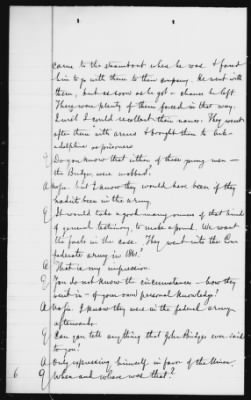 came to the steamboat where he was & forced
him to go with them to their company. He went with
them, but as soon as he got a chance he left
There were plenty of them forced in that way.
I wish I could recollect their names. They went
after them with arms & brought them to
as prisoners
Q Do you know that either of these young men –
the Bridges, were mobbed?
A No sir, but I know they would have been if they
hadn't been in the army.
Q It would take a good many ounces of that kind
of general testimony, to make a pound. We want
the facts in the case. They went into the Con-
federate army in 1861?
A That is my impression.
Q You do not know the circumstances – how they
went in – of your own personal knowledge?
A No sir. I know they were in the federal army
afterwards.
Q Can you tell anything that John Bridges ever said
to you?
A Only expressing himself in favor of the Union.
Q When and where was that?
6